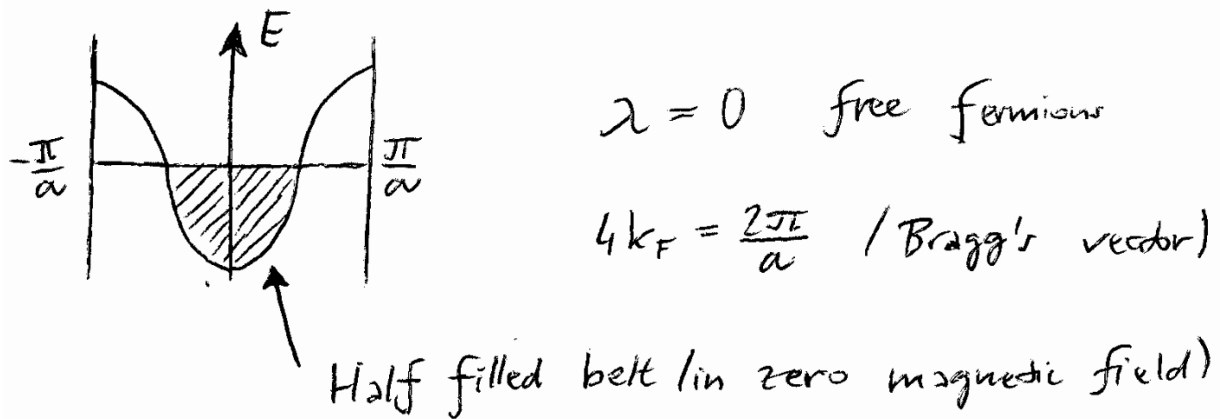 E
-π/a
π/a
λ = 0 free fermions
4k_F = 2π/a (Bragg's vector)
Half filled belt (in zero magnetic field)